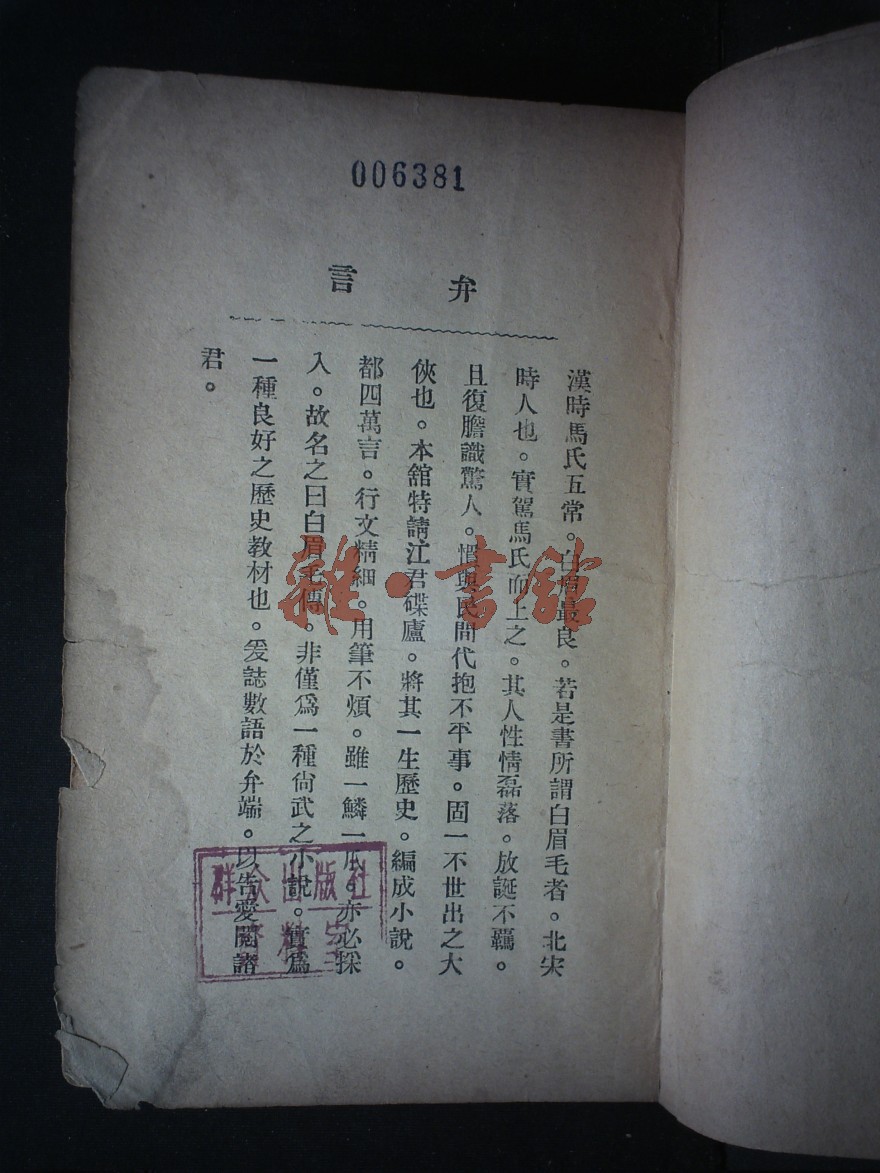 006381
弁言
漢時馬氏五常。白眉最良。若是書所謂白眉毛者。北宋
時人也。實駕馬氏而上之。其人性情磊落。放誕不羈。
且復膽識驚人。慣與民間代抱不平事。固一不世出之大
俠也。本舘特請江君碟廬。將其一生歷史。編成小說。
都四萬言。行文精細。用筆不煩。雖一鱗一爪。亦必採
入。故名之曰白眉毛傳。非僅爲一種尙武之小說。實爲
一種良好之歷史教材也。爰誌數語於弁端。以告愛閱諸
君。
雜·書館
群众出版社
資料室